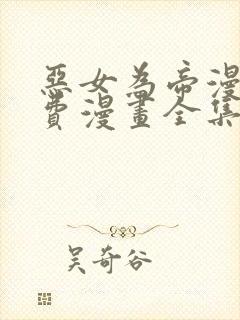 惡女為帝漫
費漫畫全集
吳奇谷